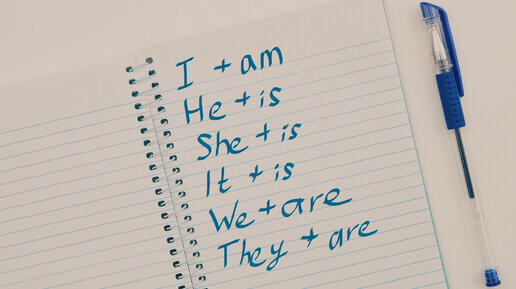 I + am
He + is
She + is
It + is
We + are
They + are